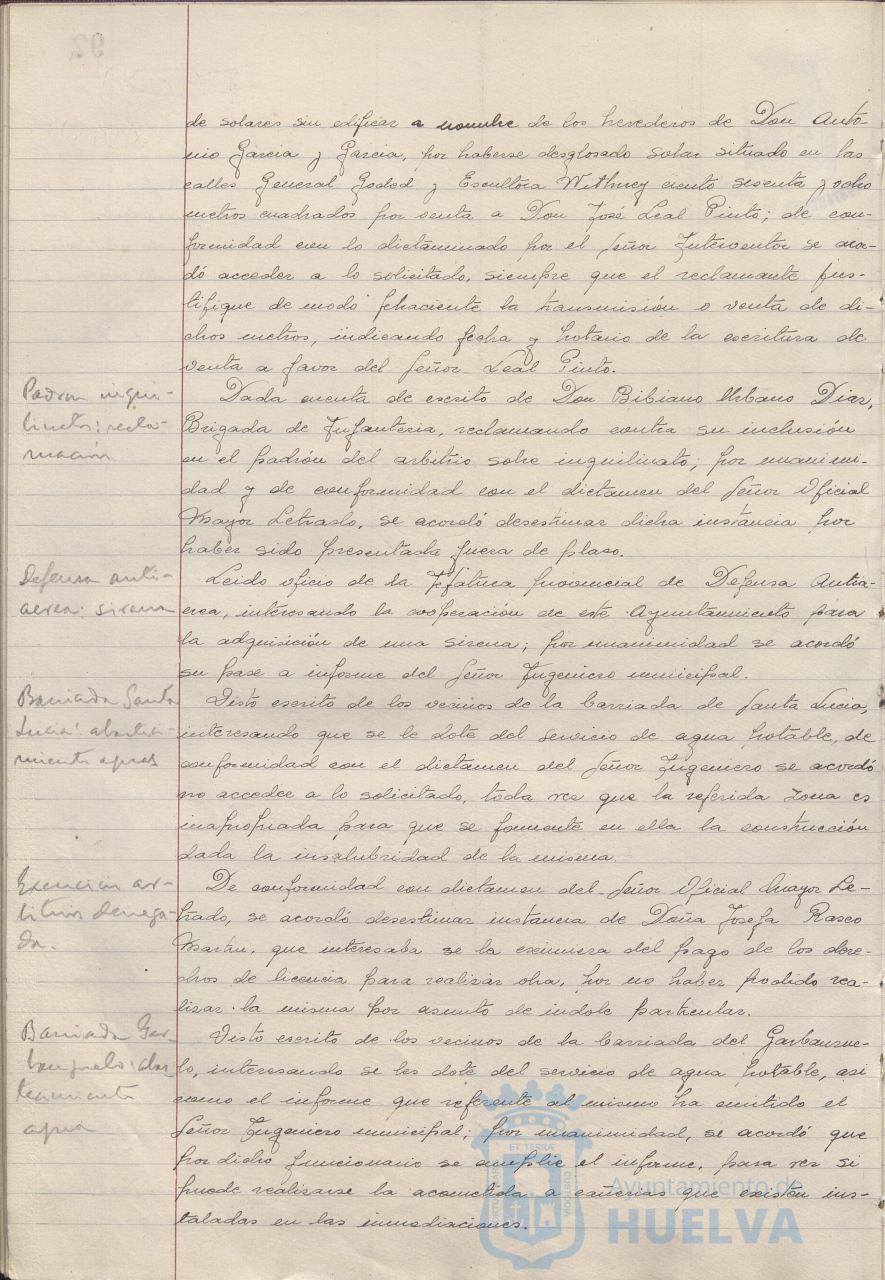 de solares sin edificar a nombre de los herederos de Don Anto-
nio Garcia y Garcia, por haberse desglosado solar situado en las
calles General Godod y Escultora Withney ciento sesenta y ocho
metros cuadrados por venta a Don José Leal Pinto; de con-
formidad con lo dictaminado por el Señor Interventor se acor-
dó acceder a lo solicitado, siempre que el reclamante jus-
tifique de modo fehaciente la transmisión o venta de di-
chos metros, indicando fecha y notario de la escritura de
venta a favor del Señor Leal Pinto.
Padron inqui-
linato: recla-
mación
Dada cuenta de escrito de Don Bibiano Urbano Diaz,
Brigada de Infanteria, reclamando contra su inclusión
en el padrón del arbitrio sobre inquilinato; por unanimi-
dad y de conformidad con el dictamen del Señor Oficial
Mayor Letrado, se acordó desestimar dicha instancia por
haber sido presentada fuera de plaso.
Defensa anti-
aerea: sirena
Leido oficio de la Jefatura provincial de Defensa Antia-
erea, interesando la cooperación de este Ayuntamiento para
la adquisición de una sirena; por unanimidad se acordó
su pase a informe del Señor Ingeniero municipal.
Barriada Santa
Lucia: abasteci-
miento aguas
Visto escrito de los vecinos de la barriada de Santa Lucia,
interesando que se le dote del servicio de agua potable, de
conformidad con el dictamen del Señor Ingeniero se acordó
no acceder a lo solicitado, toda vez que la referida zona es
inapropiada para que se fomente en ella la construcción
dada la insalubridad de la misma.
Exencion ar-
bitrios denega-
da.
De conformidad con dictamen del Señor Oficial Mayor Le-
trado, se acordó desestimar instancia de Doña Josefa Rasco
Martin, que interesaba se la eximiera del pago de los dere-
chos de licencia para realizar obra, por no haber podido rea-
lizar la misma por asunto de indole particular.
Barriada Gar-
banzuelo: abas-
tecimiento
agua
Visto escrito de los vecinos de la barriada del Garbanzue-
lo, interesando se les dote del servicio de agua potable, asi
como el informe que referente al mismo ha emitido el
Señor Ingeniero municipal; por unanimidad, se acordó que
por dicho funcionario se amplie el informe, para ver si
puede realizarse la acometida a cañerias que existen ins-
taladas en las inmediaciones.
Ayuntamiento de
HUELVA